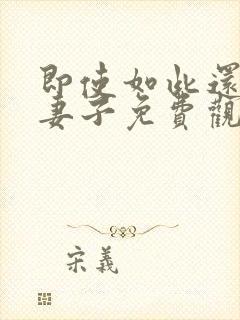 即使如此還
妻子免費觀
宋義